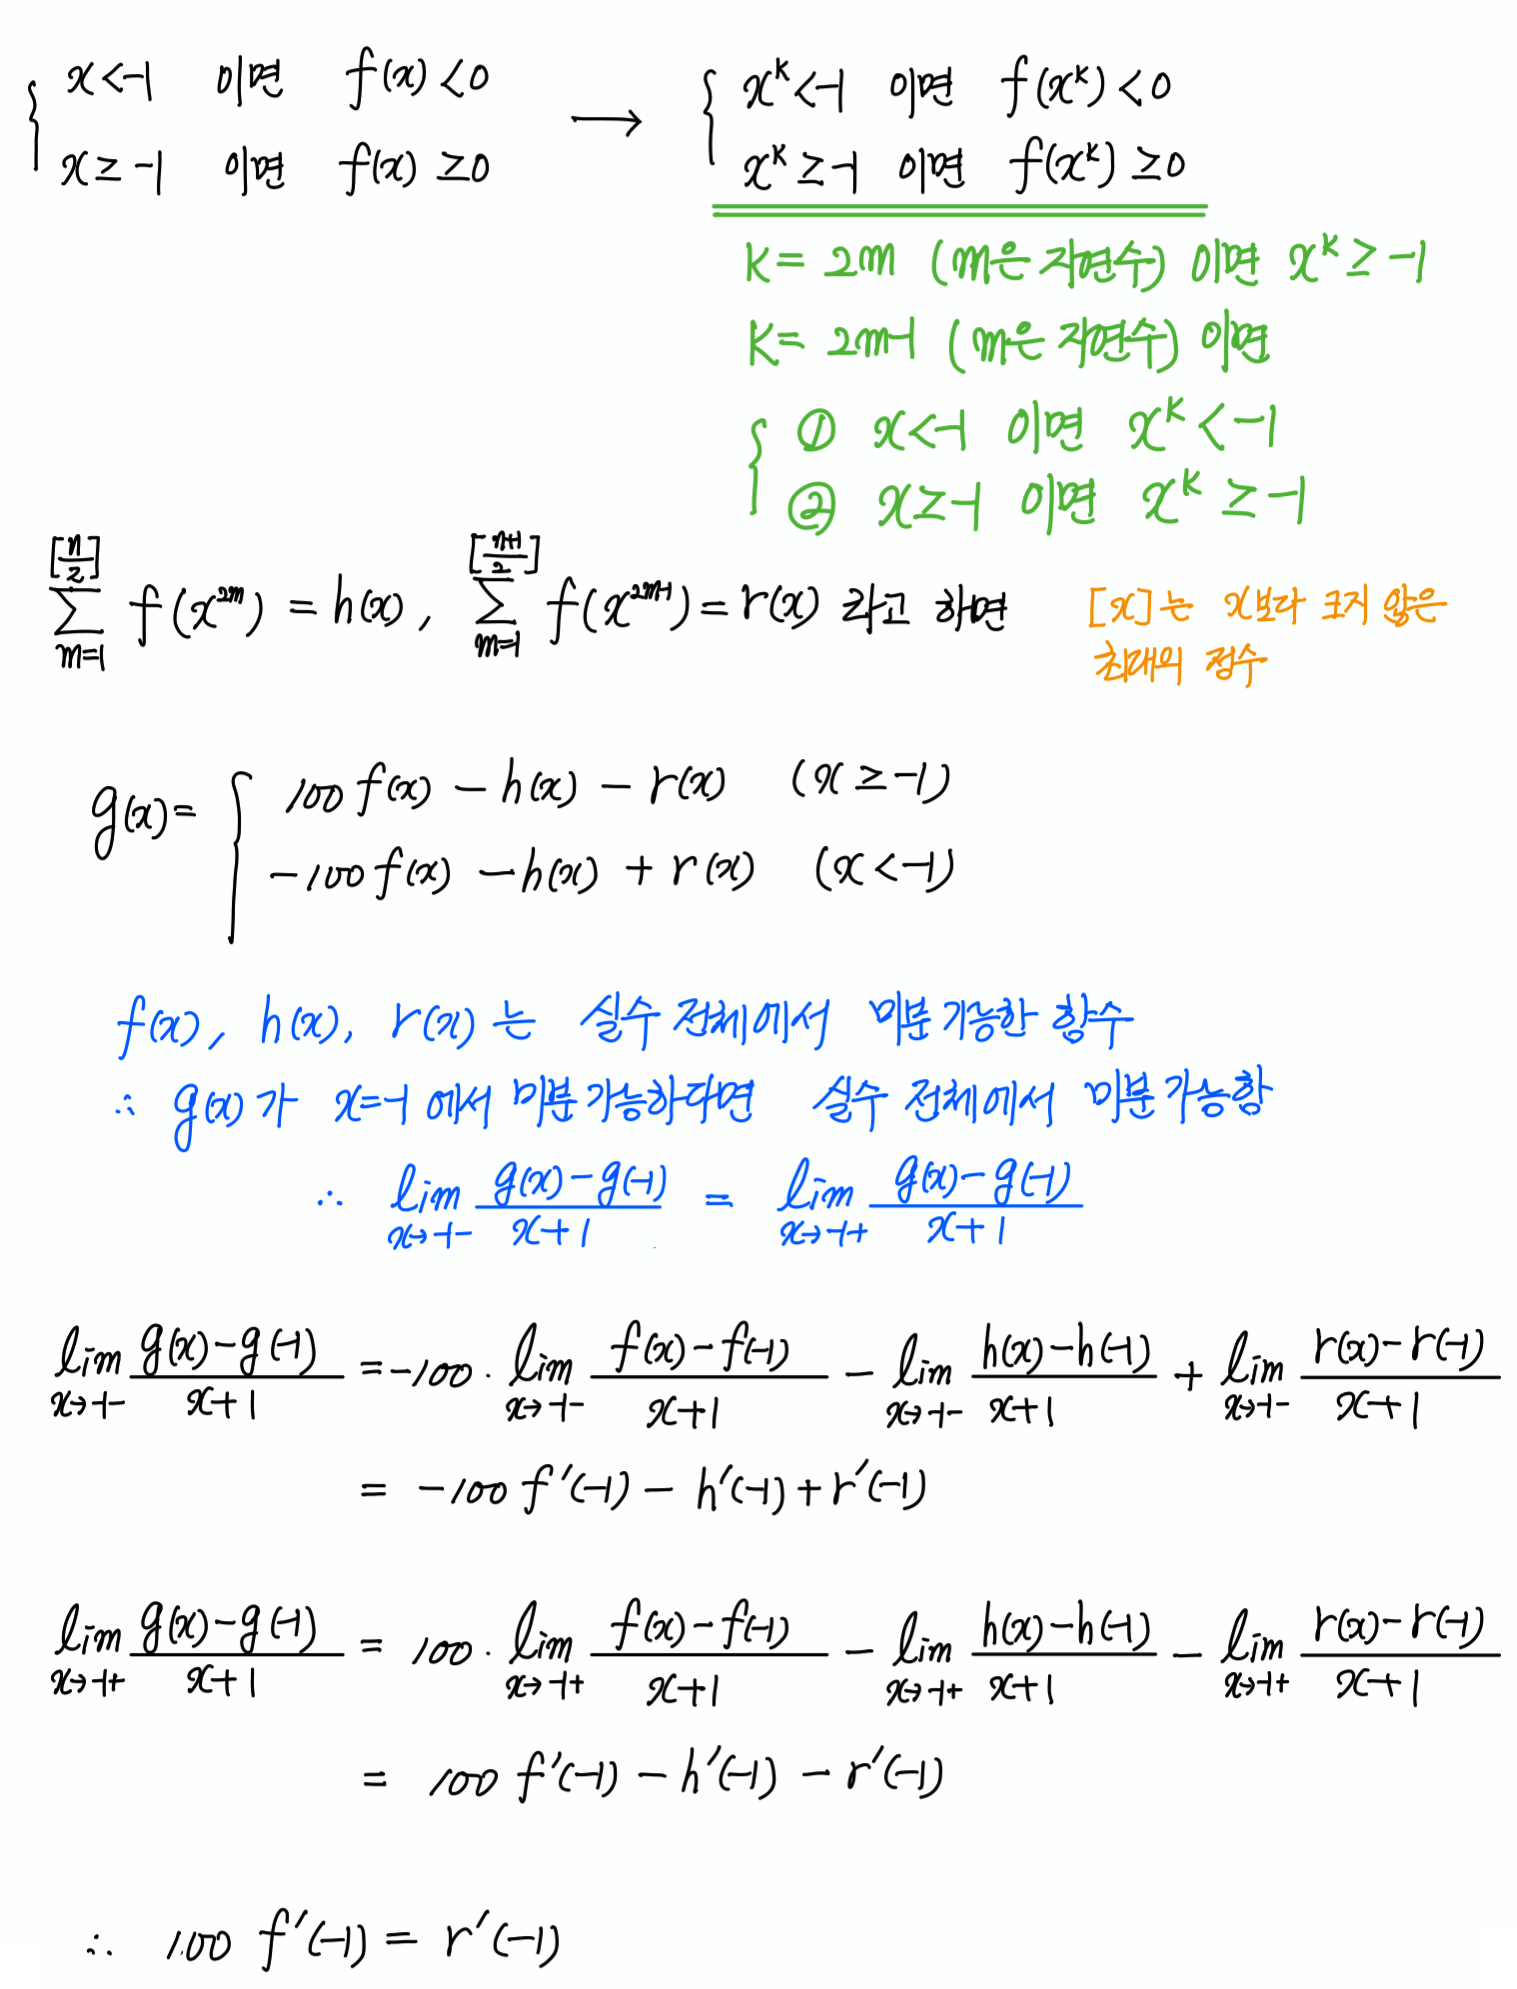 { x<-1 이면 f(x)<0 → { x^k<-1 이면 f(x^k)<0
x≥-1 이면 f(x)≥0 x^k≥-1 이면 f(x^k)≥0
K=2m (m은 자연수) 이면 x^k≥-1
K=2m-1 (m은 자연수) 이면
{ ① x<-1 이면 x^k<-1
② x≥-1 이면 x^k≥-1
∑_{m=1}^{[n/2]} f(x^{2m}) = h(x), ∑_{m=1}^{[(n+1)/2]} f(x^{2m-1}) = r(x) 라고 하면
[x]는 x보다 크지 않은
최대의 정수
g(x)= { 100f(x) - h(x) - r(x) (x≥-1)
-100f(x) - h(x) + r(x) (x<-1)
f(x), h(x), r(x)는 실수 전체에서 미분가능한 함수
∴ g(x)가 x=-1에서 미분가능하다면 실수 전체에서 미분가능함
∴ lim_{x→-1-} (g(x)-g(-1))/(x+1) = lim_{x→-1+} (g(x)-g(-1))/(x+1)
lim_{x→-1-} (g(x)-g(-1))/(x+1) = -100 · lim_{x→-1-} (f(x)-f(-1))/(x+1) - lim_{x→-1-} (h(x)-h(-1))/(x+1) + lim_{x→-1-} (r(x)-r(-1))/(x+1)
= -100f'(-1) - h'(-1) + r'(-1)
lim_{x→-1+} (g(x)-g(-1))/(x+1) = 100 · lim_{x→-1+} (f(x)-f(-1))/(x+1) - lim_{x→-1+} (h(x)-h(-1))/(x+1) - lim_{x→-1+} (r(x)-r(-1))/(x+1)
= 100 f'(-1) - h'(-1) - r'(-1)
∴ 100 f'(-1) = r'(-1)